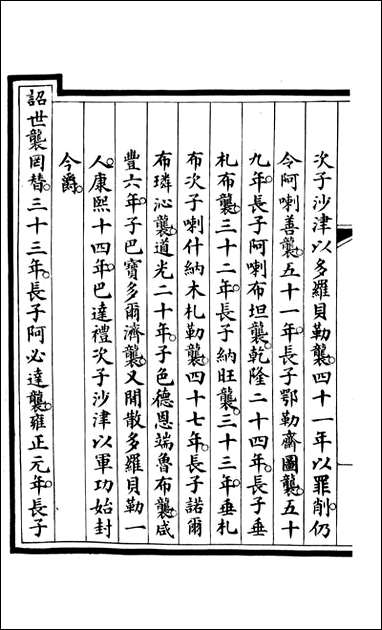 次子沙津以多羅貝勒襲。四十一年以罪削。仍
令阿喇善襲。五十一年。長子鄂勒齋圖襲。五十
九年。長子阿喇布坦襲。乾隆二十四年。長子垂
札布襲。三十二年。長子納旺襲。三十三年。垂札
布次子喇什納木札勒襲。四十七年。長子諾爾
布璘沁襲。道光二十年。子色德恩端魯布襲。咸
豐六年。子巴寶多爾濟襲。又閒散多羅貝勒一
人。康熙十四年。巴達禮次子沙津以軍功始封
今爵。
詔世襲罔替。三十三年。長子阿必達襲。雍正元年。長子